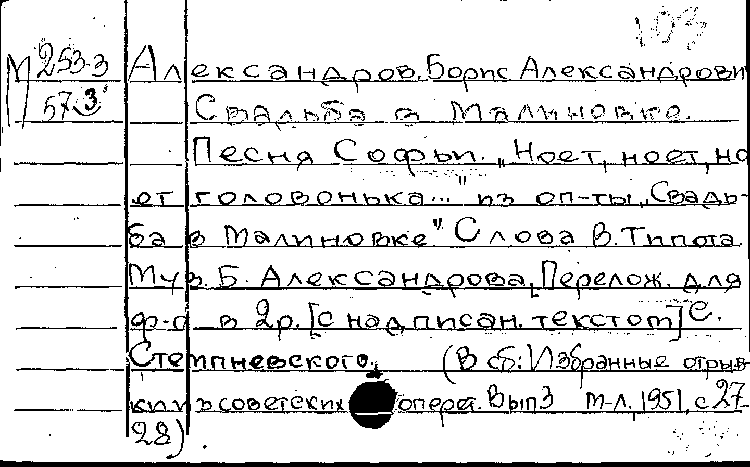 103
М 253-3
57.3
Александров, Борис Александрови
Свадьба в Малиновке.
Песня Софьи. „Ноет, ноет, но
ет головонька..." из оп-ты „Свадь-
ба в Малиновке" Слова В. Типота
Муз. Б. Александрова, Перелож. для
ф-п в 2р. [с надписан. текстом] С.
Стемпневского. (В сб: Избранные отрыв
ки из советских оперет. Вып 3 М-Л, 1951, с 27
28).